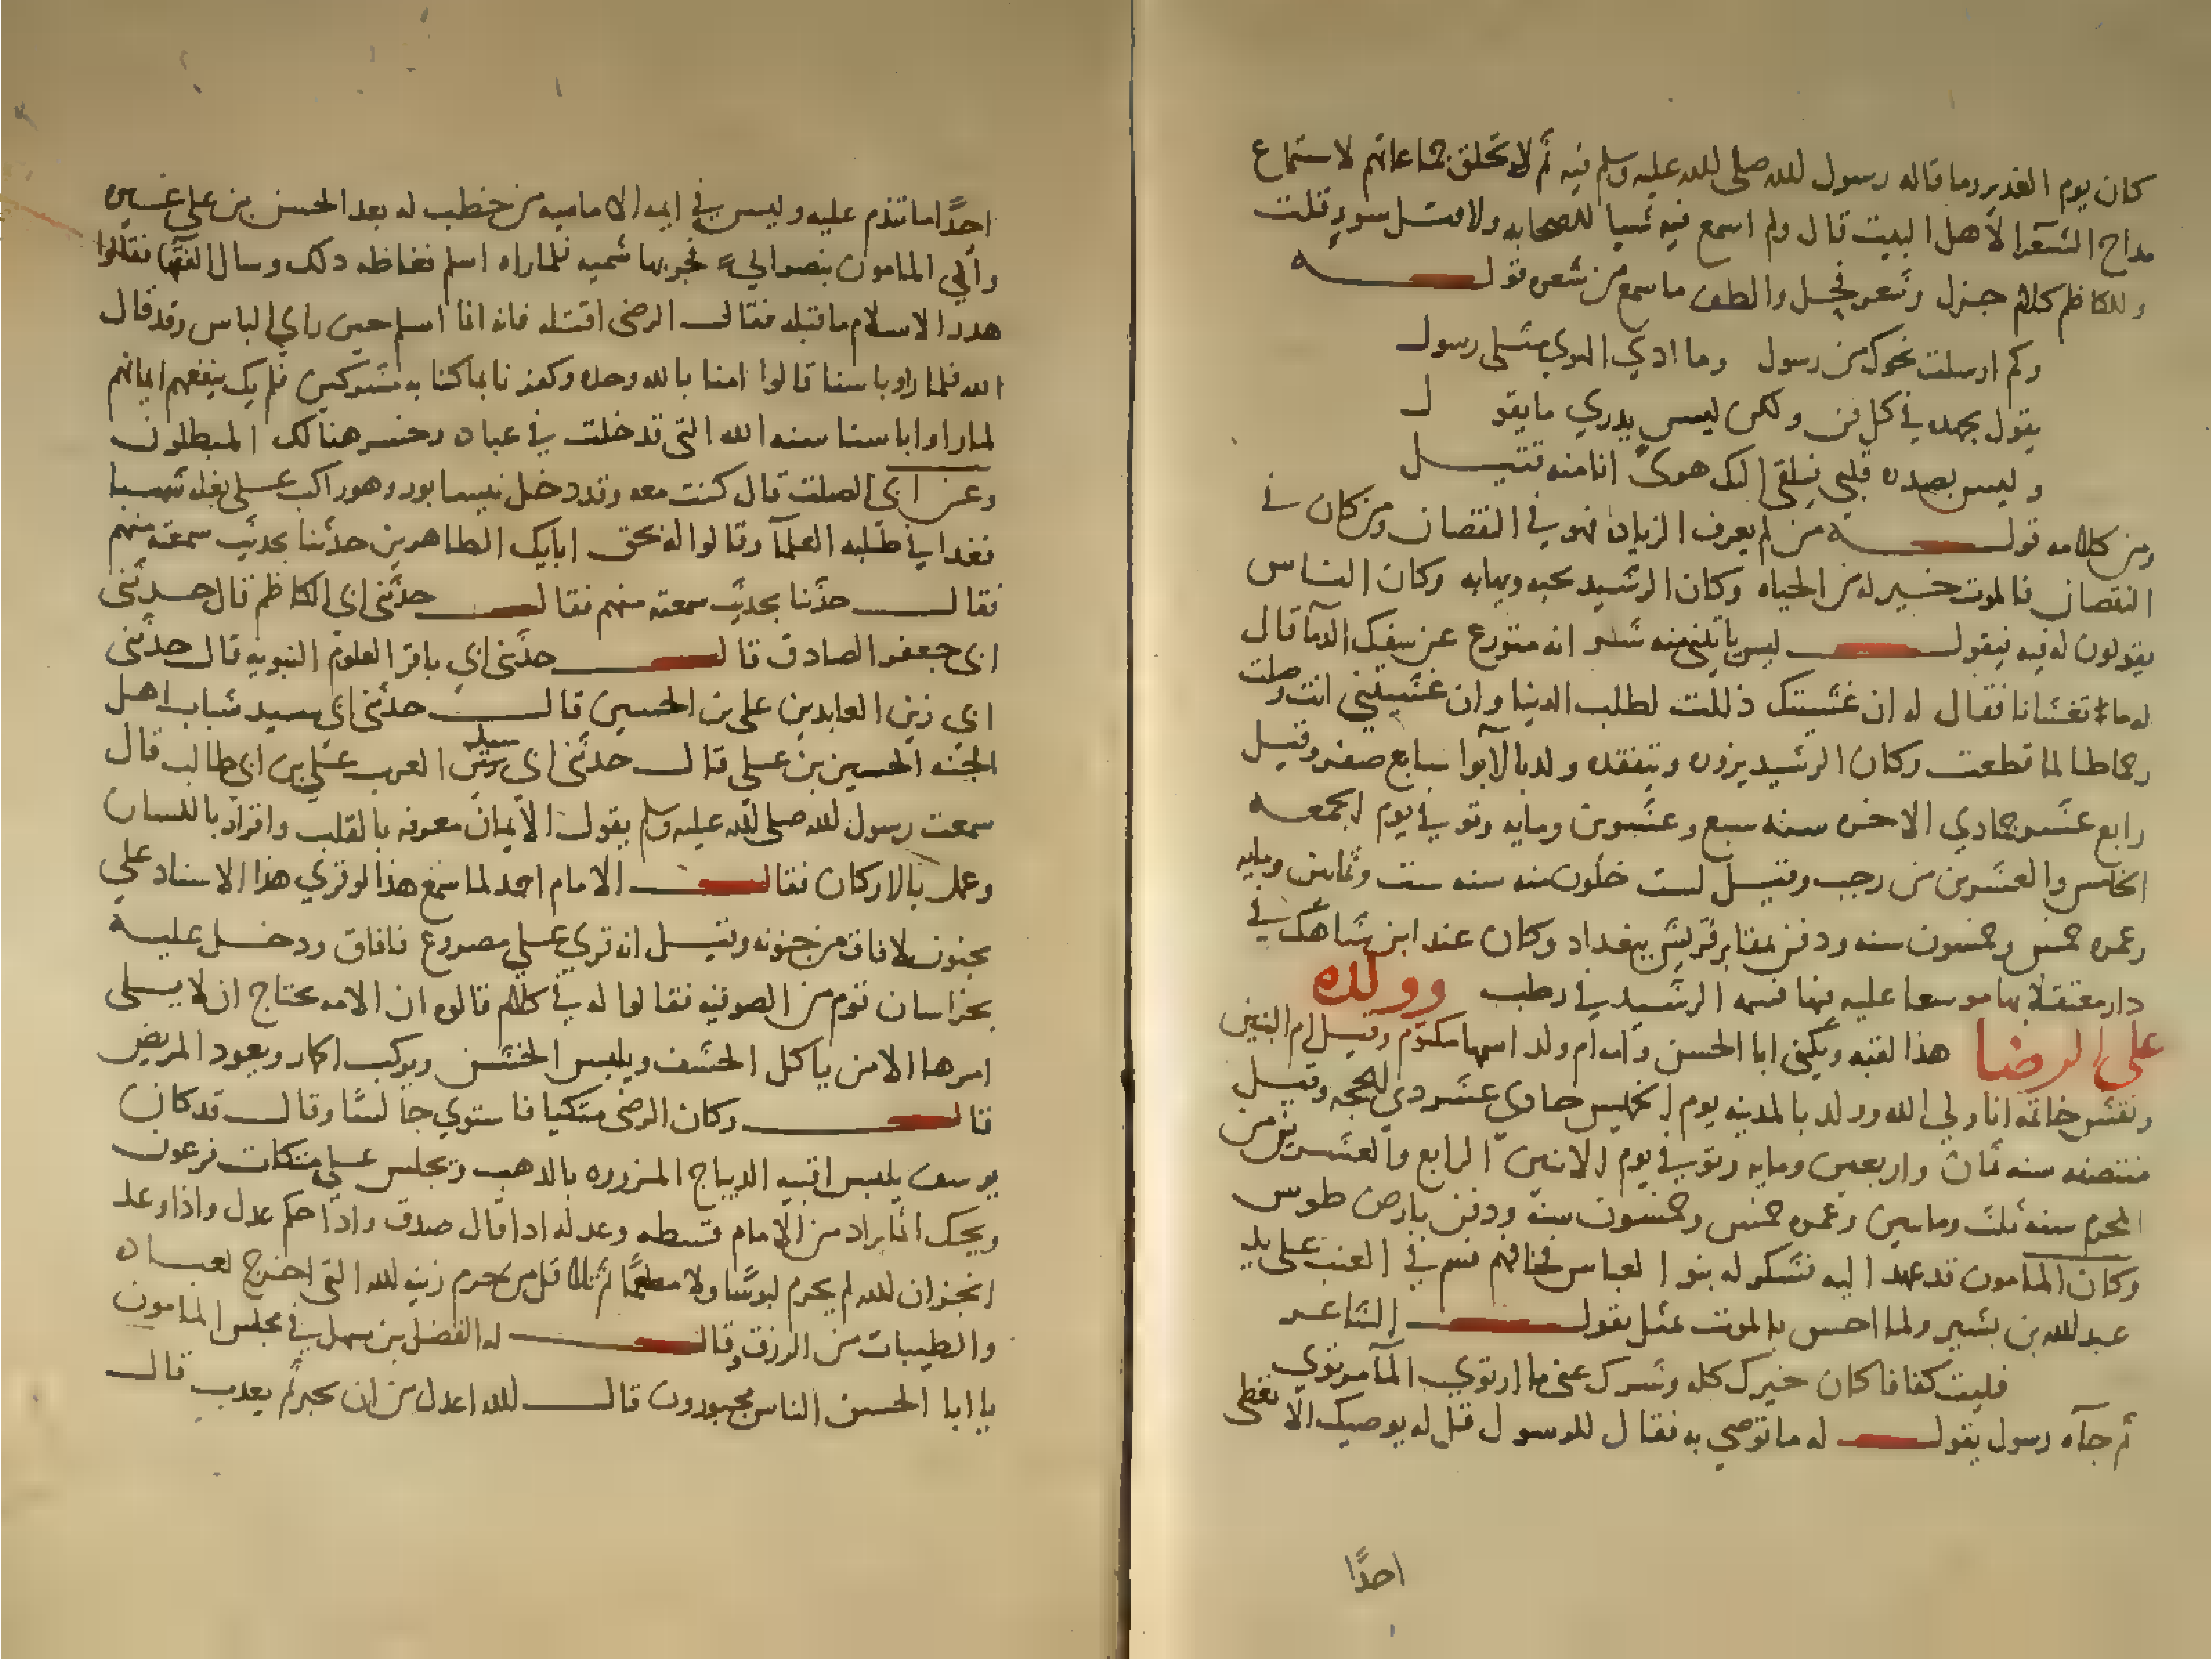 كان يوم الغدير وما قاله رسول الله صلى الله عليه وسلم فيه ثم لا تحلق جماعاتهم لاستماع
مداح الشعرا لاهل البيت قال ولم اسمع فيه شيا للصحابه ولا سور قلت
وللكاظم كلام جزل وشعر فحل والطف ما سمع من شعره قوله
وكم ارسلت نحوك من رسول وما ادي الهوي مثلي رسول
يقول بجهده في كل فن ولكن ليس يدري ما يقول
وليس بصده قلبي فيلقي اليك هوي انا منه قتيل
ومن كلامه قوله من لم يعرف الزياده فهو في النقصان ومن كان في
النقصان فالموت خير له من الحياه وكان الرشيد يحبه ويهابه وكان الناس
يقولون له فيه فيقول ليس ياتيني منه شر انه متورع عن سفك الدمآ قال
له ما تغشانا فقال له ان غشيتك ذللت لطلب الدنيا وان غشيتني انت وصلت
رحما طالما قطعت وكان الرشيد يزوره ويتفقده ولد بالآبوا سابع صفر وقيل
رابع عشر جمادي الاخره سنه سبع وعشرين ومايه وتوفي يوم الجمعه
الخامس والعشرين من رجب وقيل لست خلون منه سنه ست وثمانين ومايه
وعمره خمس وخمسون سنه ودفن بمقابر قريش ببغداد وكان عند ابن شاهك في
دار معتقلا بها موسعا عليه فيها فسمه الرشيد في رطب وولده
علي الرضا هذا لقبه ويكني ابا الحسن وامه ام ولد اسمها مكتوم وقيل ام البنين
ونقش خاتمه انا ولي الله وولد بالمدينه يوم الخميس حادي عشر ذي الحجه وقيل
منتصفه سنه ثمان واربعين ومايه وتوفي يوم الاثنين الرابع والعشرين من
المحرم سنه ثلث ومايتين وعمره خمس وخمسون سنه ودفن بارض طوس
وكان المامون قد عهد اليه فتنكر له بنو العباس فخافهم فسم في العنب علي يد
عبد الله بن بشير ولما احس بالموت تمثل بقول الشاعر
فليت كفافا كان خيرك كله وشرك عني ما ارتوي المآ مرتوي
ثم جآه رسول يقول له ما توصي به فقال للرسول قل له يوصيك الا تعطي
احدًا
احدًا ما تندم عليه وليس في ايمه الاماميه من خطب له بعد الحسن بن علي غيره
واُتي المامون بنصراني فجر بهاشميه فلما راه اسلم فغاظه ذلك وسال الفقها فقالوا
هدر الاسلام ما قبله فقال الرضي اقتله فانه انما اسلم حين راي الباس وقد قال
الله فلما راو باسنا قالوا امنا بالله وحده وكفرنا بما كنا به مشركين فلم يك ينفعهم ايمانهم
لما راوا باسنا سنه الله التي قد خلت في عباده وخسر هنالك المبطلون
وعن ابي الصلت قال كنت معه وقد دخل نيسابور وهو راكب علي بغله شهبا
فغدا يا طلبه العلمآ وقالوا له بحق ابايك الطاهرين حدثنا بحديث سمعته منهم
فقال حدثنا بحديث سمعته منهم فقال حدثني ابي الكاظم قال حدثني
ابي جعفر الصادق قال حدثني ابي باقر العلوم النبويه قال حدثني
ابي زين العابدين علي بن الحسين قال حدثني ابي سيد شباب اهل
الجنه الحسين بن علي قال حدثني ابي سيد العرب علي بن ابي طالب قال
سمعت رسول الله صلى الله عليه وسلم يقول الايمان معرفه بالقلب واقرار باللسان
وعمل بالاركان فقال الامام احمد لما سمع هذا لو قري هذا الاسناد علي
مجنون لافاق من جنونه وقيل انه قري علي مصروع فافاق ودخل عليه
بخراسان قوم من الصوفيه فقالوا له في كلام قالوه ان الامه تحتاج ان لا يلي
امرها الا من ياكل الخشف ويلبس الخشن ويركب الحمار ويعود المريض
قال وكان الرضي متكيا فاستوي جالسًا وقال قد كان
يوسف يلبس اقبيه الديباج المزرره بالذهب وتجلس علي متكات فرعون
ويحك انما يراد من الامام قسطه وعدله اذا قال صدق واذا حكم عدل واذا وعد
انجز ان الله لم يحرم لبوسًا ولا مطعمًا ثم تلا قل من حرم زينه الله التي اخرج لعباده
والطيبات من الرزق وقال له الفضل بن سهل في مجلس المامون
يا ابا الحسن الناس مجبورون قال الله اعدل من ان يجبر ثم يعذب قال